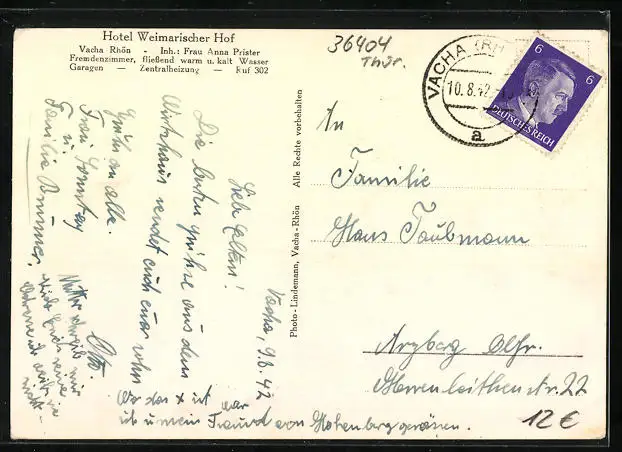 Hotel Weimarischer Hof
Vacha Rhön - Inh.: Frau Anna Prister
Fremdenzimmer, fließend warm u. kalt Wasser
Garagen — Zentralheizung — Ruf 302
Vacha, 9.8.42
Liebe Eltern!
Die besten Grüße aus dem
Wirtshaus sendet euch euer Sohn
Otto.
Grüße an alle.
Frau Sonntag
u.
Familie
Mutter schreib mir
Wo das x ist war
ich u mein Freund von Hohenberg gesessen.
Photo-Lindemann, Vacha-Rhön Alle Rechte vorbehalten
36404
Thür.
VACHA (RH
10.8.42
a
6 6
DEUTSCHES REICH
An
Familie
Hans Taubmann
Arzberg Ofr.
22
12 €